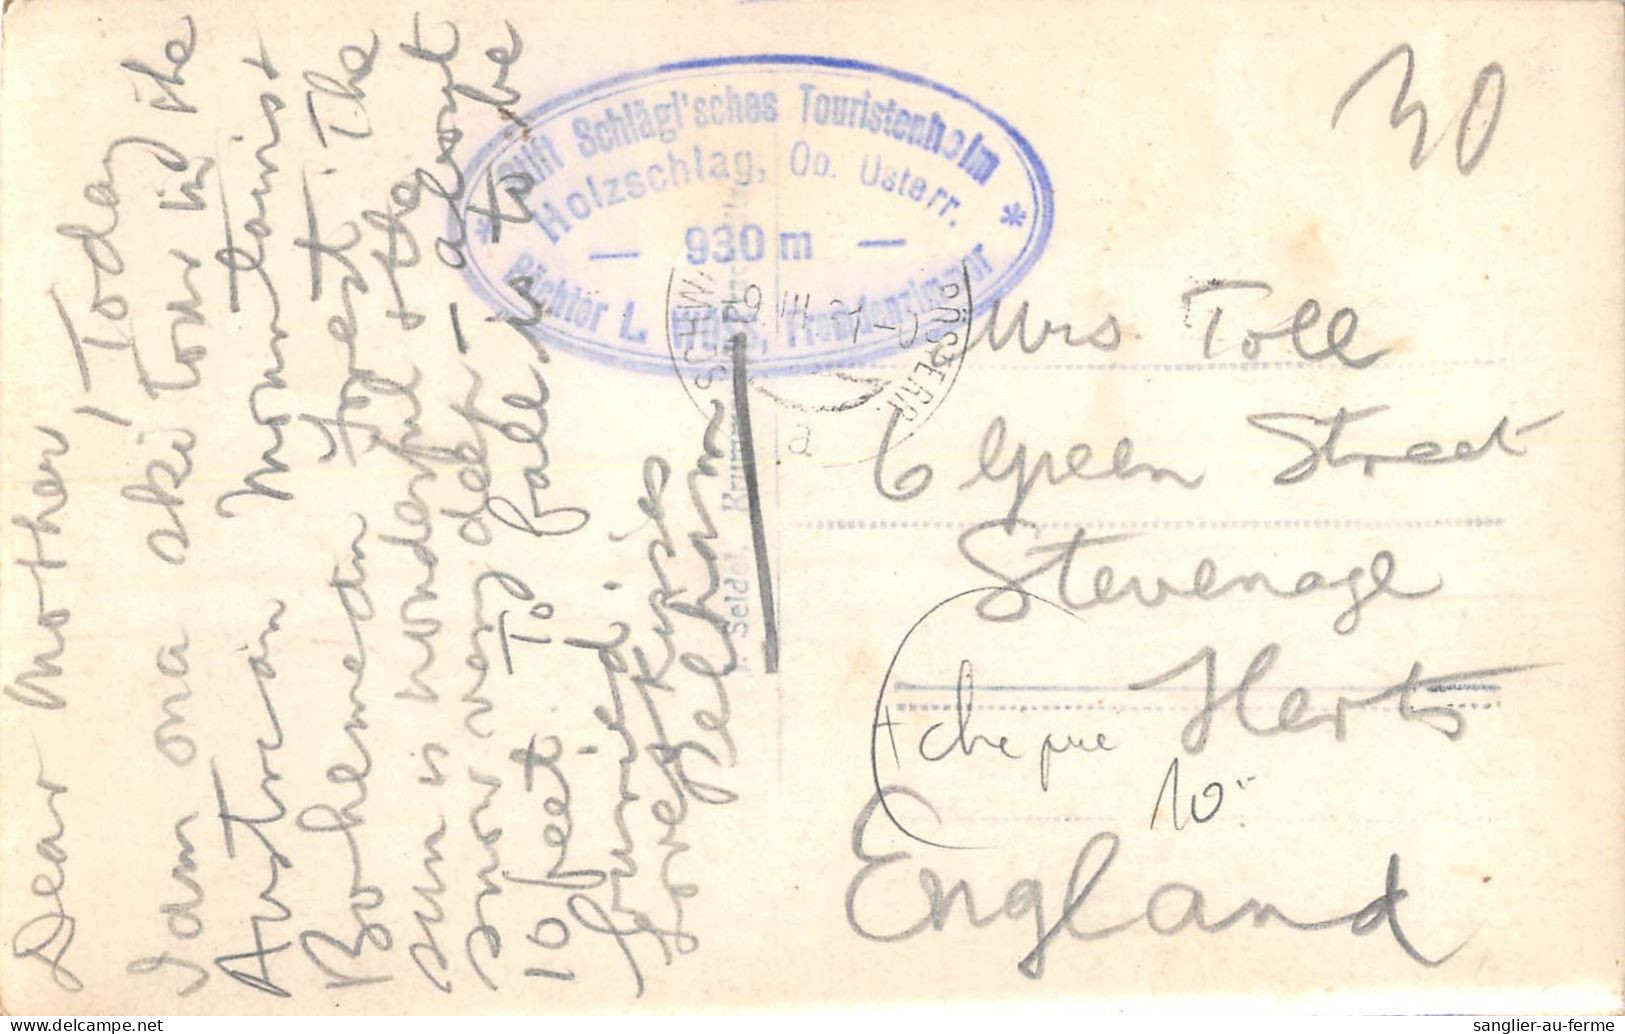 Dear Mother, Today
I am on a ski tour in the
Austrian Mountainist
Bohemean Forest. The
sun is wonderful & the
snow very deep – about
10 feet. To fall is to be
buried.
Love & kisses
Pelham
Stift Schlägl'sches Touristenheim
Holzschlag, Ob. Österr.
* — 930 m — *
Pächter L. Fremdenzimmer
Seidel, Krumau
30
Mrs Toll
6 Green Street
Stevenage
Herts
England
+ cheque
10
sanglier-au-ferme